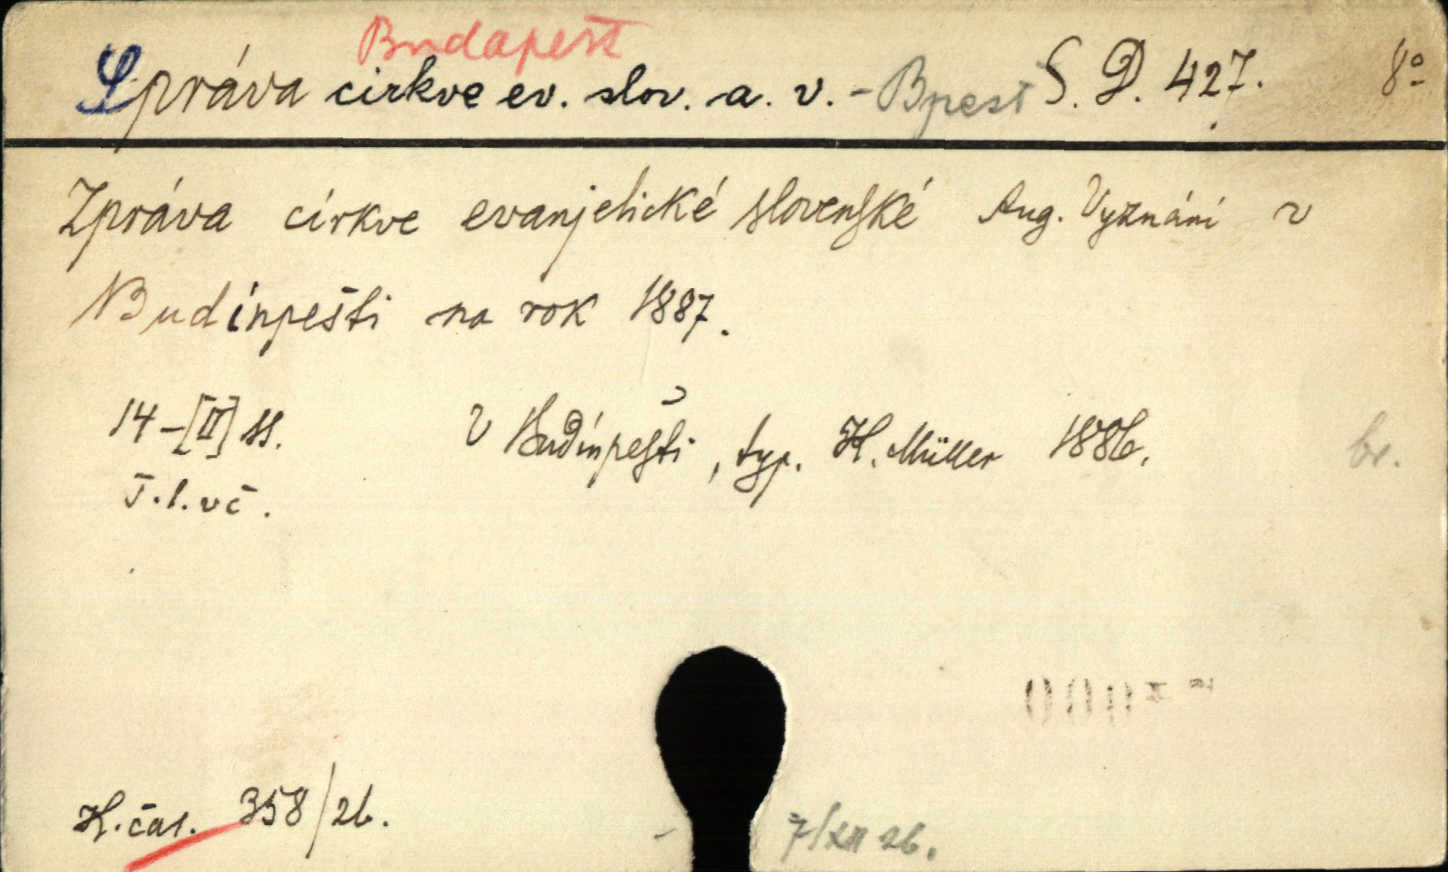 Budapešť
Správa cirkve ev. slov. a. v. - Bpest S. D. 427. 8°
Zpráva církve evanjelické slovenské Aug. Vyznání v
Budínpešti na rok 1887.
14-[II] ss. V Budínpešti, typ. H. Müller 1886. br.
T. l. vč.
H. čas. 358/26.
7/XII 26.